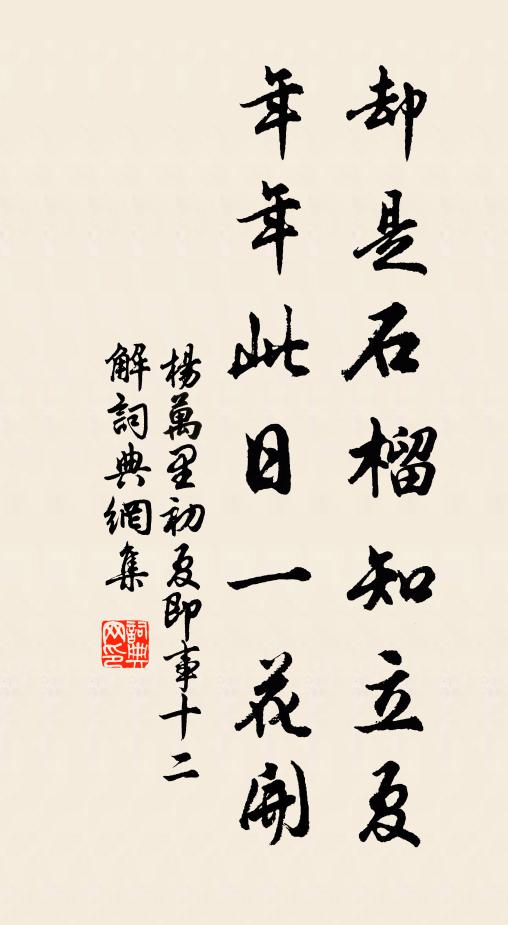 却是石榴知立夏
年年此日一花開
楊萬里初夏即事十二
解詞典網集
詞典
网印